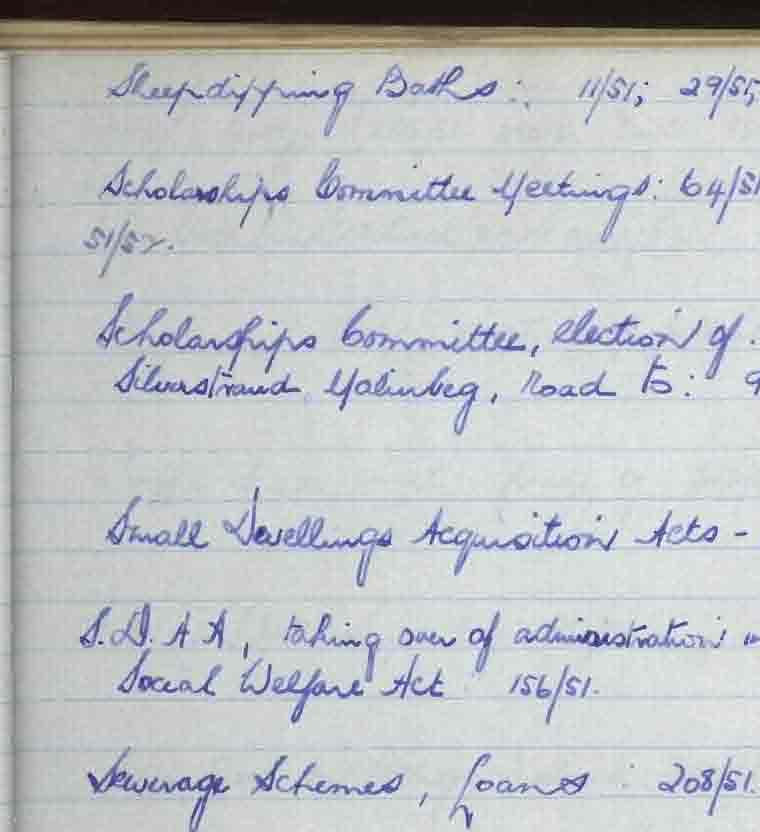 Sheepdipping Baths: 11/51; 29/51;
Scholarships Committee Meetings: 64/51
51/52.
Scholarships Committee, election of.
Silverstrand Malinbeg, Road to: 9
Small Dwellings Acquisition Acts -
S.D.A A, taking over of administration
Social Welfare Act 156/51.
Sewerage Schemes, Loans : 208/51.